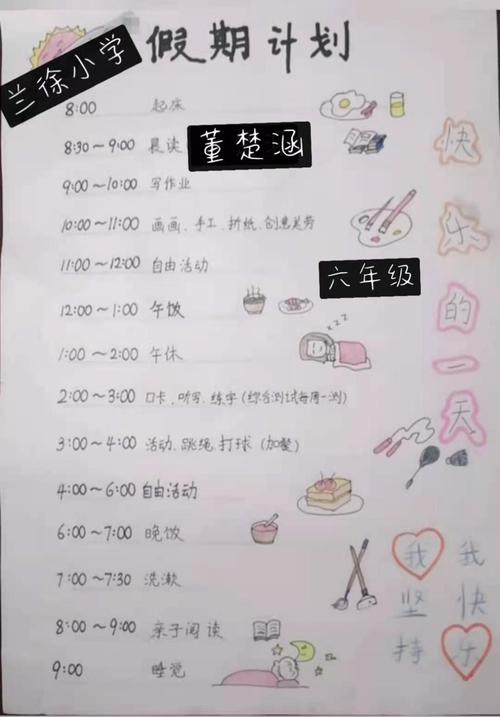 假期计划
兰徐小学
8:00 起床
8:30～9:00 晨读
董楚涵
9:00～10:00 写作业
10:00～11:00 画画、手工、折纸、创意美劳
11:00～12:00 自由活动
六年级
12:00～1:00 午饭
1:00～2:00 午休
2:00～3:00 口卡、听写、练字(综合测试每周一测)
3:00～4:00 活动、跳绳、打球(加餐)
4:00～6:00 自由活动
6:00～7:00 晚饭
7:00～7:30 洗漱
8:00～9:00 亲子阅读
9:00 睡觉
zzz
快乐的一天
我坚持
我快乐